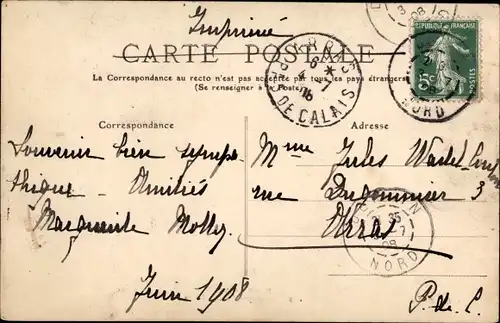 Imprimé
CARTE POSTALE
La Correspondance au recto n'est pas acceptée par tous les pays étrangers
(Se renseigner à la Poste)
Correspondance
Adresse
Souvenir bien sympa-
thique - Amitiés
Marguerite Molly
Juin 1908
Mme Jules
rue Dugommier 3
Arras
P-de-C.
REPUBLIQUE FRANÇAISE
5c
POSTES
DE CALAIS
NORD
NORD